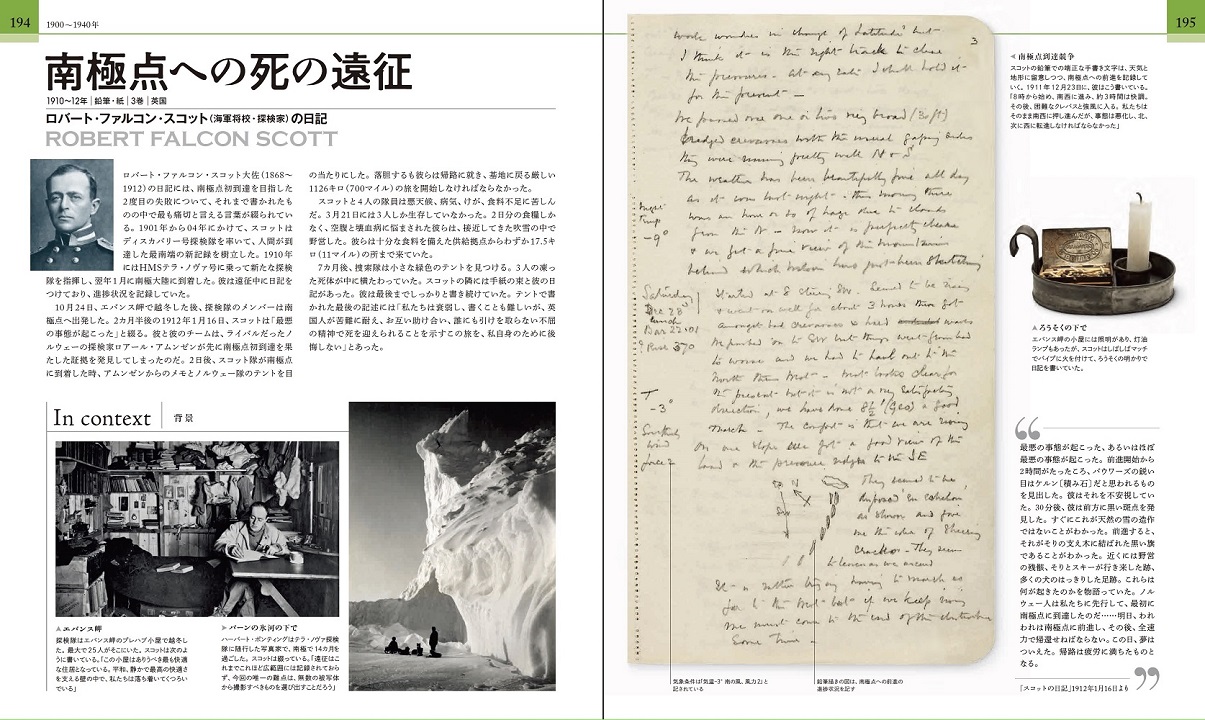 194
1900〜1940年
南極点への死の遠征
1910〜12年|鉛筆・紙|3巻|英国
ロバート・ファルコン・スコット(海軍将校・探検家)の日記
ROBERT FALCON SCOTT
ロバート・ファルコン・スコット大佐(1868〜
1912)の日記には、南極点初到達を目指した
2度目の失敗について、それまで書かれたも
のの中で最も痛切と言える言葉が綴られてい
る。1901年から04年にかけて、スコットは
ディスカバリー号探検隊を率いて、人間が到
達した最南端の新記録を樹立した。1910年
にはHMSテラ・ノヴァ号に乗って新たな探検
隊を指揮し、翌年1月に南極大陸に到着した。彼は遠征中に日記を
つけており、進捗状況を記録していた。
10月24日、エバンス岬で越冬した後、探検隊のメンバーは南
極点へ出発した。2カ月半後の1912年1月16日、スコットは「最悪
の事態が起こった」と綴る。彼と彼のチームは、ライバルだったノ
ルウェーの探検家ロアール・アムンゼンが先に南極点初到達を果
たした証拠を発見してしまったのだ。2日後、スコット隊が南極点
に到着した時、アムンゼンからのメモとノルウェー隊のテントを目
の当たりにした。落胆するも彼らは帰路に就き、基地に戻る厳しい
1126キロ(700マイル)の旅を開始しなければならなかった。
スコットと4人の隊員は悪天候、病気、けが、食料不足に苦しん
だ。3月21日には3人しか生存していなかった。2日分の食糧しか
なく、空腹と壊血病に悩まされた彼らは、接近してきた吹雪の中で
野営した。彼らは十分な食料を備えた供給拠点からわずか17.5キ
ロ(11マイル)の所まで来ていた。
7カ月後、捜索隊は小さな緑色のテントを見つける。3人の凍っ
た死体が中に横たわっていた。スコットの隣には手紙の束と彼の日
記があった。彼は最後までしっかりと書き続けていた。テントで書
かれた最後の記述には「私たちは衰弱し、書くことも難しいが、英
国人が苦難に耐え、お互い助け合い、誰にも引けを取らない不屈
の精神で死を迎えられることを示すこの旅を、私自身のために後
悔しない」とあった。
In context 背景
▲エバンス岬
探検隊はエバンス岬のプレハブ小屋で越冬し
た。最大で25人がそこにいた。スコットは次のよ
うに書いている。「この小屋はありうべき最も快適
な住居となっている。平和、静かで最高の快適さ
を支える壁の中で、私たちは落ち着いてくつろい
でいる」
▶バーンの氷河の下で
ハーバート・ポンティングはテラ・ノヴァ探検
隊に随行した写真家で、南極で14カ月を
過ごした。スコットは綴っている。「遠征はこ
れまでこれほど広範囲には記録されておら
ず、今回の唯一の難点は、無数の被写体
から撮影すべきものを選び出すことだろう」
195
3
work wonders in change of latitude but
I think it is the right track to close
the pressures - at any rate I shall hold it
for the present -
We passed over one or two very broad (30 ft)
bridged crevasses with the usual gaping sides
they were running pretty well N & S.
The weather has been beautifully fine all day
as it was last night - this morning there
was an hour or so of haze due to clouds
from the N - Now it is perfectly clear
& we get a fine view of the mountains
behind which Wilson has just been sketching
Night
Temp
-9°
Started at 8 steering SW. Seemed to be rising
& went on well for about 3 hours then got
amongst bad crevasses & hard waves
We pushed on to SW but things went from bad
to worse and we had to haul out to the
North then West - West looks clear for
the present but it is not a very satisfactory
direction, we have done 8½' (Geo) a good
march - The comfort is that we are rising
On one slope we got a good view of the
land & the pressure ridges to the SE
They seemed to be
disposed en echelon
as shown and gave
me the idea of shearing
cracks - They seem
to lessen as we ascend
It is rather trying having to march so
far to the West but if we keep rising
we must come to the end of the disturbance
Some time
T
-3°
Southerly
wind
force 2
◀南極点到達競争
スコットの鉛筆での端正な手書き文字は、天気と
地形に留意しつつ、南極点への前進を記録して
いく。1911年12月23日に、彼はこう書いている。
「8時から始め、南西に進み、約3時間は快調。
その後、困難なクレバスと強風に入る。私たちは
そのまま南西に押し進んだが、事態は悪化し、北、
次に西に転進しなければならなかった」
▲ろうそくの下で
エバンス岬の小屋には照明があり、灯油
ランプもあったが、スコットはしばしばマッチ
でパイプに火を付けて、ろうそくの明かりで
日記を書いていた。
最悪の事態が起こった、あるいはほぼ
最悪の事態が起こった。前進開始から
2時間がたったころ、バウワーズの鋭い
目はケルン[積み石]だと思われるもの
を見出した。彼はそれを不安視してい
た。30分後、彼は前方に黒い斑点を発
見した。すぐにこれが天然の雪の造作
ではないことがわかった。前進すると、
それがそりの支え木に結ばれた黒い旗
であることがわかった。近くには野営
の残骸、そりとスキーが行き来した跡、
多くの犬のはっきりした足跡。これらは
何が起きたのかを物語っていた。ノル
ウェー人は私たちに先行して、最初に
南極点に到達したのだ……明日、われ
われは南極点に前進し、その後、全速
力で帰還せねばならない。この日、夢は
ついえた。帰路は疲労に満ちたものと
なる。
「スコットの日記」1912年1月16日より
気象条件は「気温-3° 南の風、風力2」と
記されている
鉛筆描きの図は、南極点への前進の
進捗状況を記す